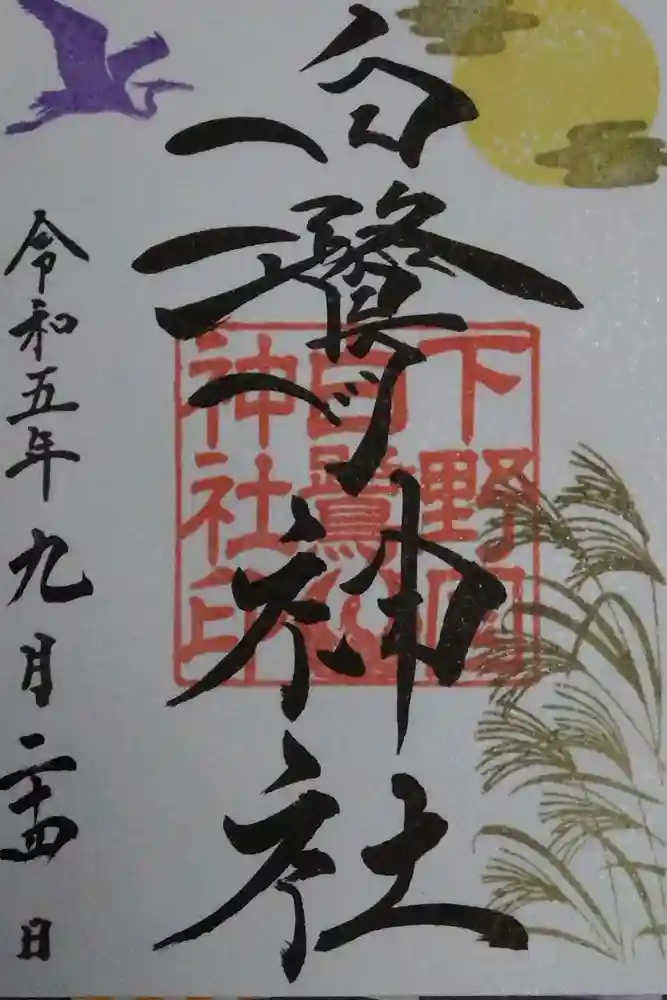 白鷺神社
令和五年九月二十四日
下野国
白鷺
神社印